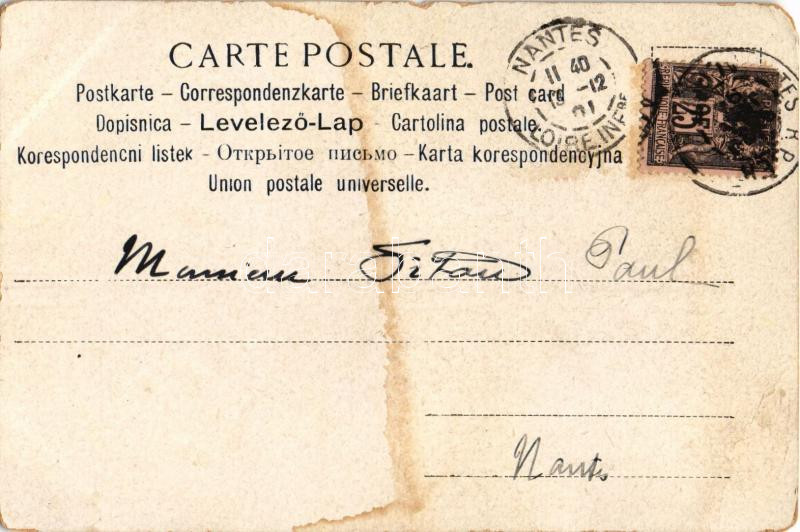 CARTE POSTALE.
NANTES
11 40
-12
01
LOIRE INFRE
Postkarte – Correspondenzkarte – Briefkaart – Post card
Dopisnica – Levelező-Lap – Cartolina postale.
Korespondencni listek – Открытое письмо – Karta korespondencyjna
Union postale universelle.
25
Monsieur Paul
Nantes